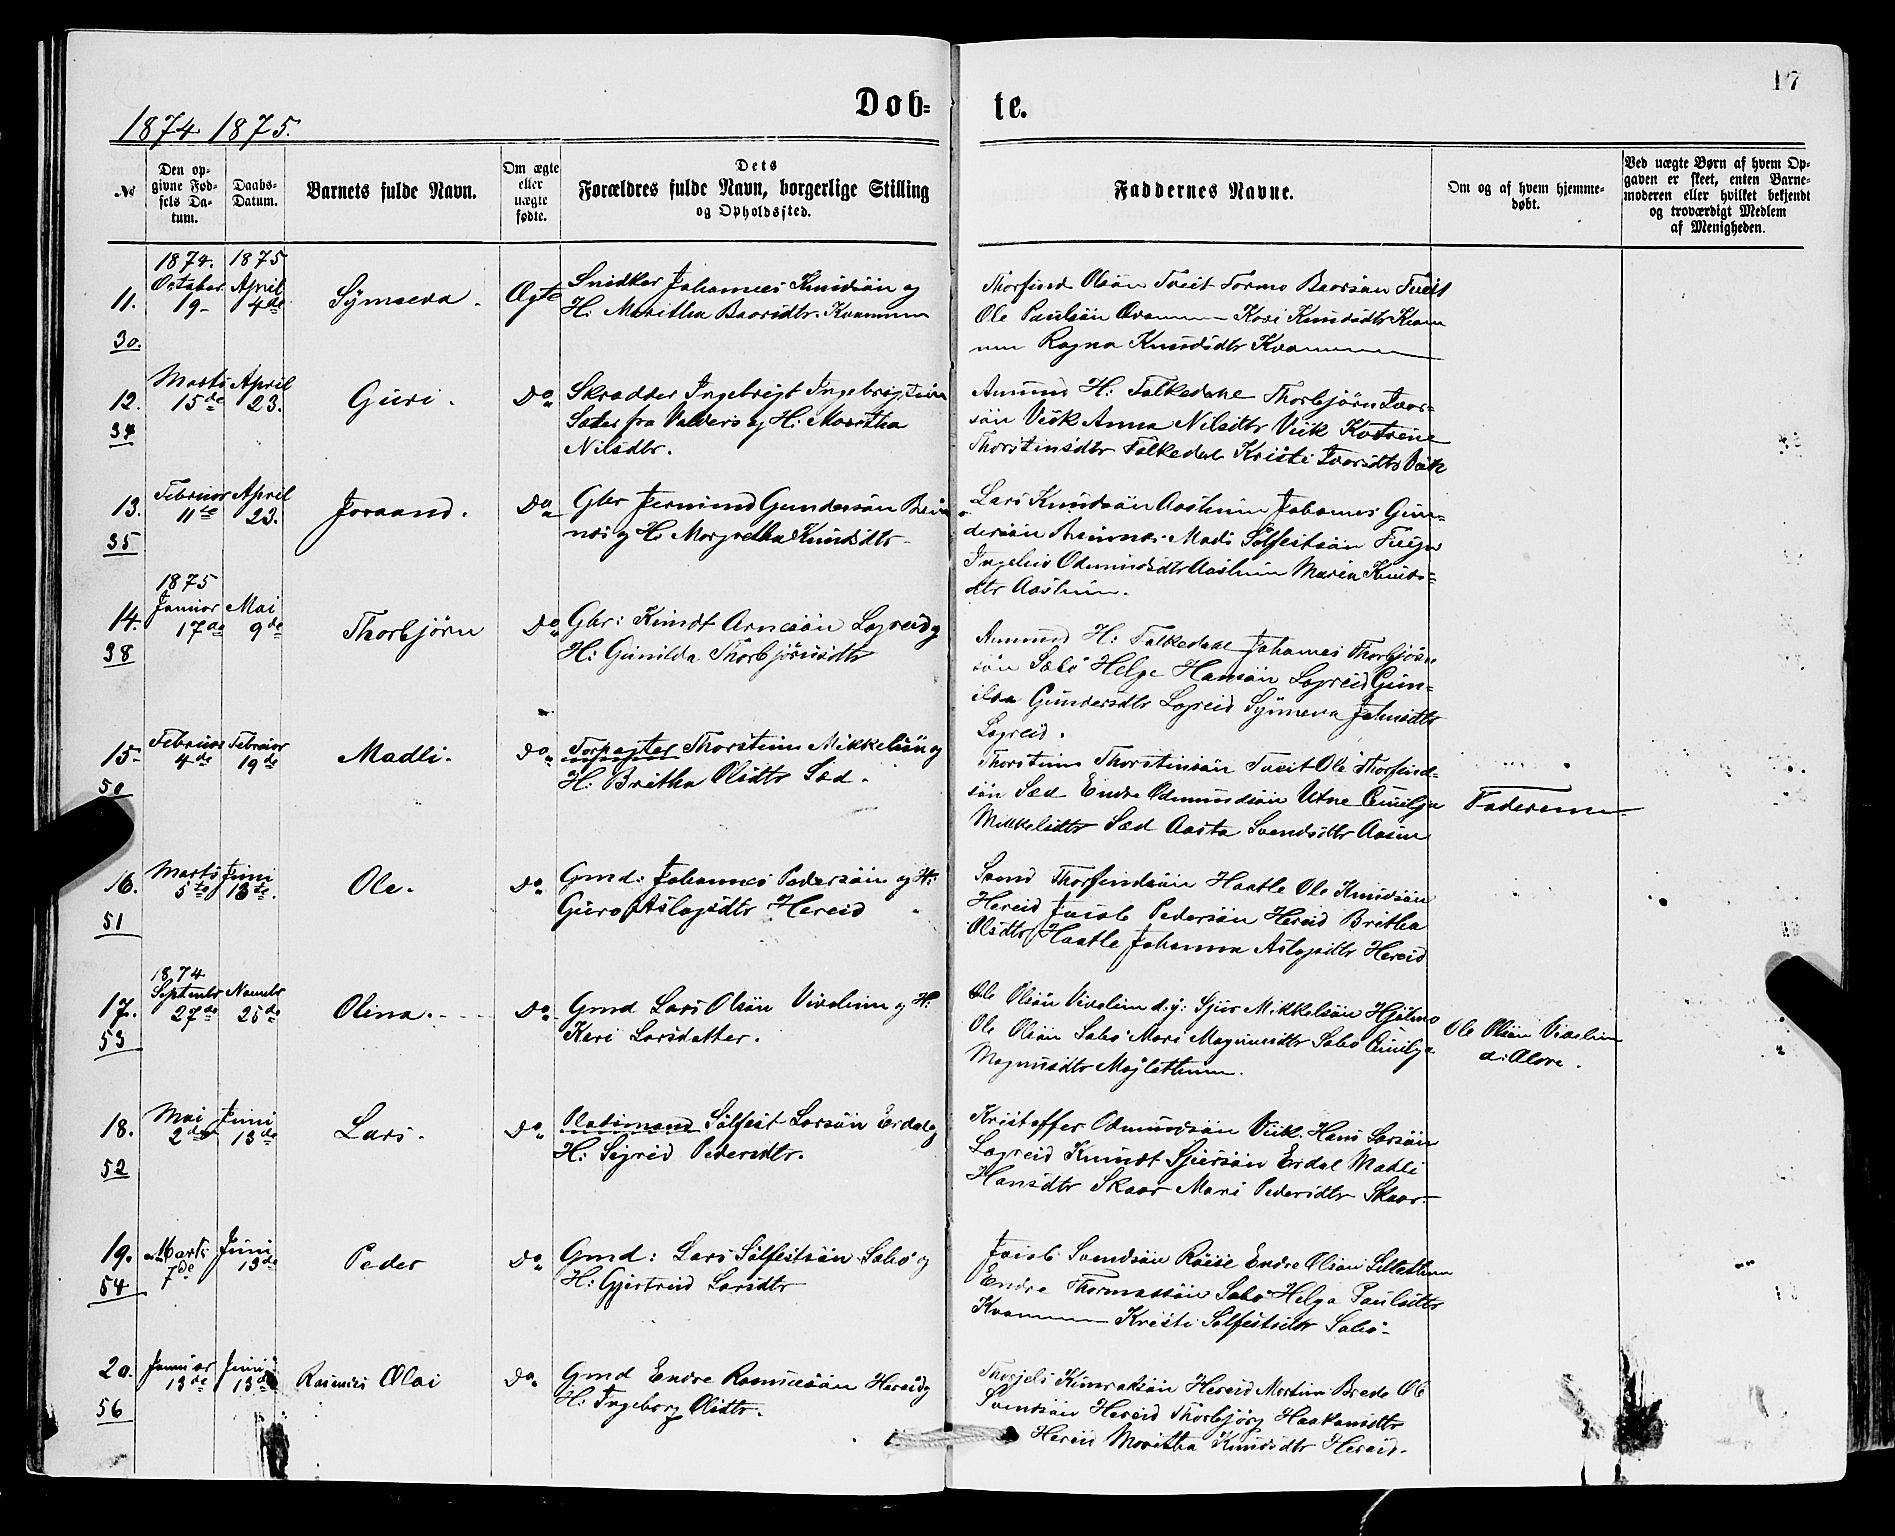 Døb-
te.
17
1874 1875.
No
Den op-
givne Fød-
sels Da-
tum.
Daabs-
Datum.
Barnets fulde Navn.
Om ægte
eller
uægte
fødte.
Dets
Forældres fulde Navn, borgerlige Stilling
og Opholdssted.
Faddernes Navne.
Om og af hvem hjemme-
døbt.
Ved uægte Børn af hvem Op-
gaven er skeet, enten Barne-
moderen eller hvilket bekjendt
og troværdigt Medlem
af Menigheden.
11.
30.
1874.
October
19-
1875
April
4de
Synneva.
Ægte
Snidker Johannes Knudsön og
H: Maritha Baarsdtr. Kvammen
Thorfind Olsön Tveit Tormo Baarsön Tveit
Ole Paulsön Kvammen Kari Knudsdtr Kvam
men Ragna Knudsdtr Kvammen
12.
34
Marts
15de
April
23.
Guri.
Do
Skrædder Ingebrigt Ingebrigtsön
Sæter fra Valders og H: Maritha
Nilsdtr.
Amund H: Folkedahl Thorbjörn Ivar-
sön Viik Anna Nilsdtr Viik Katrine
Thorstinsdtr Folkedal Kristi Ivarsdtr Viik
13.
35
Februar
11te
April
23.
Joraand.
Do
Gbr Jermund Gundersön Brim
næs og H: Margretha Knudsdtr
Lars Knudsön Aasheim Johannes Gun-
dersön Brimnæs Mads Sölfestsön
Odmundsdtr Aasheim Maria Knuds-
dtr Aasheim.
14.
38
1875
Januar
17de
Mai
9de
Thorbjörn
Do
Gbr: Knudt Arnesön Lægreid og
H: Gunilda Thorbjörnsdtr
Amund H: Folkedal Johannes Thorbjörn
sön Sæbö Helge Hansön Lægreid Gun-
ilda Gundersdtr Lægreid Synneva Johnsdtr
Lægreid.
15
50
Februar
4de
Februar
19de
Madli.
Do
Forpagter Thorstein Mikkelsön og
H: Britha Olsdtr Sæd.
Thorstein Thorstinsön Tveit Ole Thorfind-
sön Sæd Endre Odmundsön Utne
Mikkelsdtr Sæd Aasta Svendsdtr
Faderen
16.
51
Marts
5te
Juni
13te.
Ole.
Do
Gmd: Johannes Pedersön og H:
Guro Aslagsdtr Hereid
Svend Thorfindsön Haatle Ole Knudsön
Hereid Jacob Pedersön Hereid Britha
Olsdtr Haatle Johanna Aslagsdtr Hereid
17.
53
1874
Septembr
27de
Novembr
25de
Olina.
Do
Gmd Lars Olsön Vivelien og H:
Kari Larsdatter.
Ole Olsön Vivelien d:y: Sjur Mikkelsön Hjölmo
Ole Olsön Sæbö Mari Magnusdtr Sæbö
Magnusdtr Maglethun.
Ole Olsön Vivelien
d: Ældre.
18.
52
Mai
2den
Juni
13de
Lars.
Do
Pladsmand Sölfest Larsön Erdal og
H: Sigrid Pedersdtr.
Kristoffer Odmundsön Viik. Hans Larsön
Lægreid Knudt Sjursön Erdal Madli
Hansdtr Skaar Mari Pedersdtr Skaar
19.
54
Marts
7de
Juni
13de
Peder
Do
Gmd: Lars Sölfestsön Sæbö og
H: Gjertrud Larsdtr
Jacob Svendsön Röise Endre Olsön Lillethun
Endre Thormassön Sæbö Helga Paulsdtr
Kvammen Kristi Sölfestsdtr Sæbö
20.
56
Januar
13de
Juni
13de
Rasmus Olai
Do
Gmd Endre Rasmussön Hereid og
H: Ingeborg Olsdtr.
Hereid Martin Ole
Svendsön Hereid Thorbjörg Haakonsdtr
Hereid Maritha Knudsdtr Hereid.